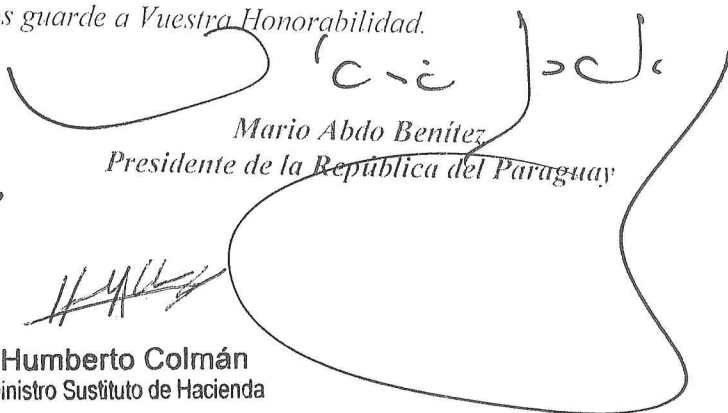 s guarde a Vuestra Honorabilidad.
Mario Abdo Benítez
Presidente de la República del Paraguay
Humberto Colmán
inistro Sustituto de Hacienda